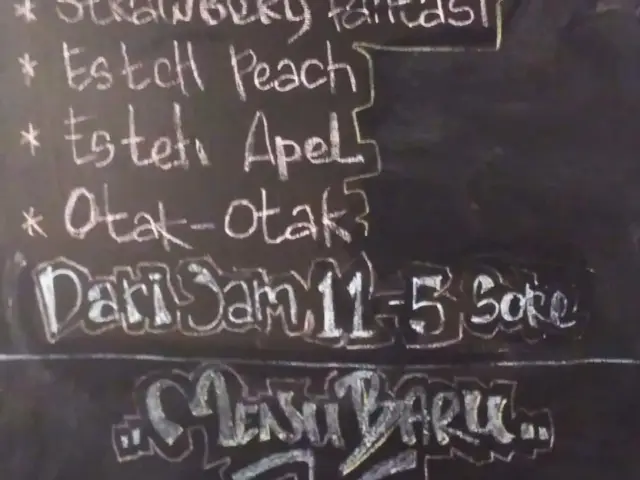 * Strawbery Fantasi
* EstcH Peach
* Esteh ApeL
* Otak-Otak
Dari Jam 11-5 Sore
..Menu Baru..